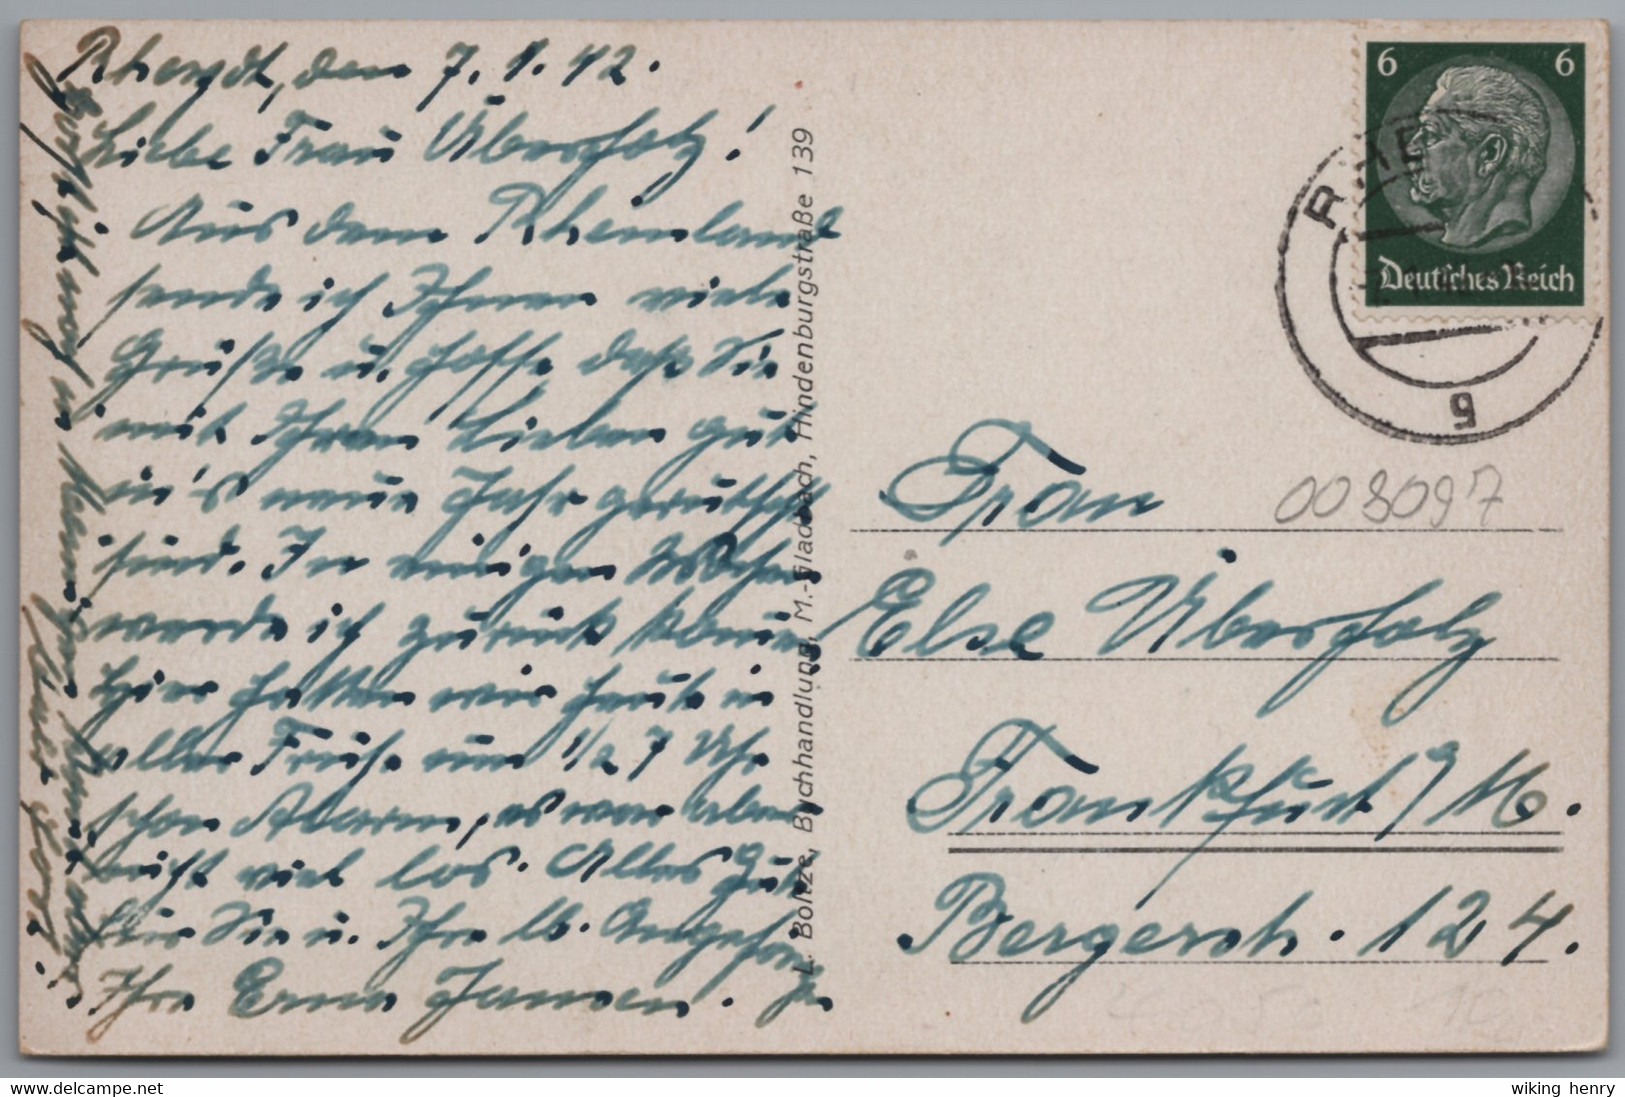 Rheydt, den 7.1.42.
Liebe Frau Überholz!
Aus dem Rheinland
sende ich Ihnen viele
Grüße u. hoffe daß Sie
mit Ihren Lieben gut
in's neue Jahr gerutscht
sind. In einigen Wochen
werde ich zurück kommen
Hier hatten wir heute in
aller Frühe um 1/2 7 Uhr
schon Alarm, es war aber
nicht viel los. Alles Gute
für Sie u. Ihre lb. Angehörigen
Ihre Erna Jansen.
L. Boltze, Buchhandlung, M.-Gladbach, Hindenburgstraße 139
6 6
Deutsches Reich
g
008097
Frau
Else Überholz
Frankfurt/M.
Bergerstr. 124.
wiking henry
www.delcampe.net